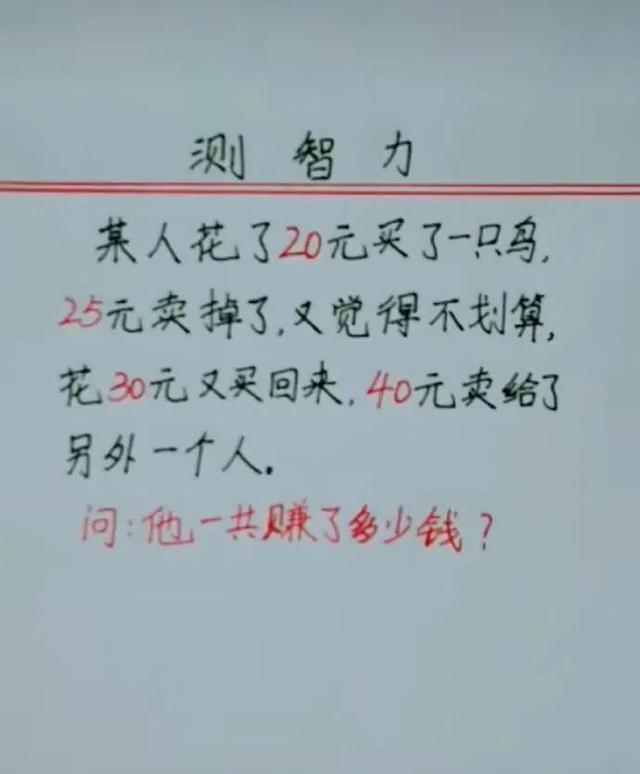 测智力
某人花了20元买了一只鸟,
25元卖掉了,又觉得不划算,
花30元又买回来,40元卖给了
另外一个人。
问:他一共赚了多少钱?